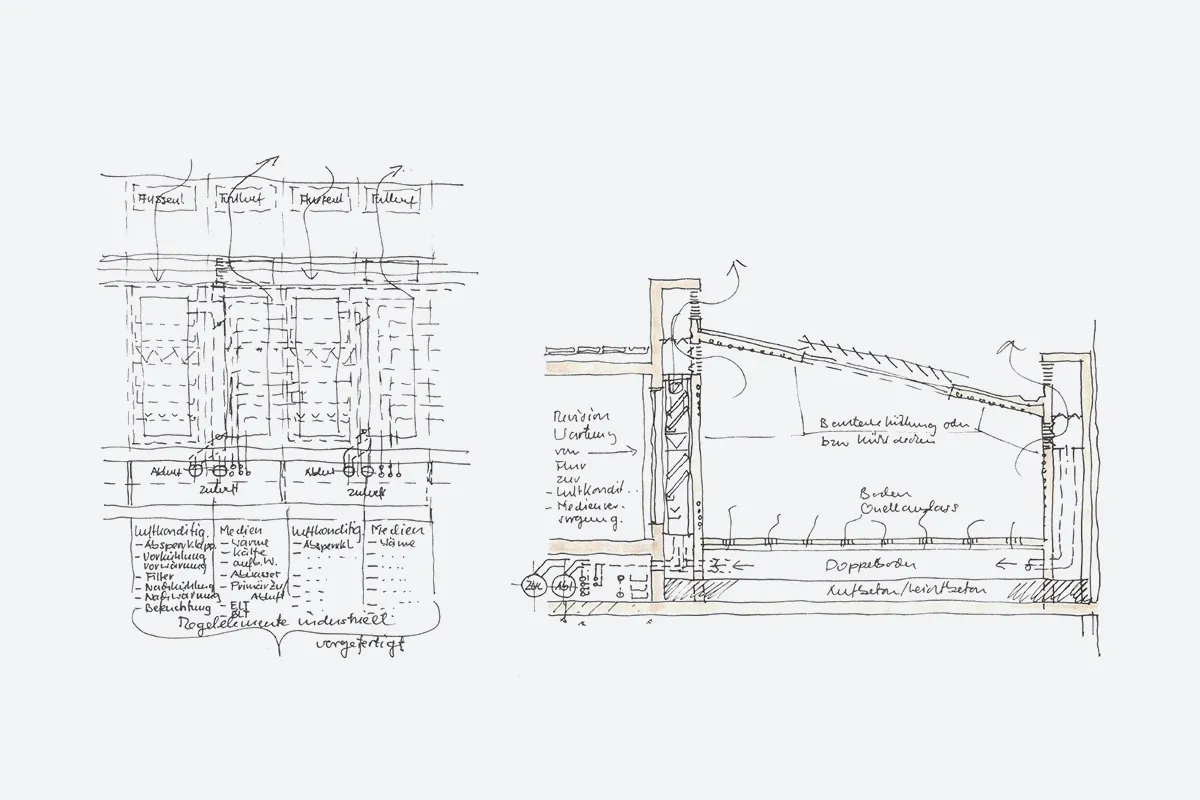 Aussenl Fortluft Aussenl Fortluft
Abluft Zuluft Abluft Zuluft
Luftkonditig.
- Absperrklapp.
- Vorkühlung
Vorwärmung
- Filter
- Nachkühlung
- Nachwärmung
- Befeuchtung
Medien
- Wärme
- Kälte
- aufb. W.
- Abwasser
- Primär Zu/
Abluft
- ELT
Luftkonditig.
- Absperrkl.
Medien
- Wärme
Regelelemente industriell
vorgefertigt
Revision
Wartung
von
Flur
zur
- Luftkondit...
- Medienver-
sorgung.
Bauteilkühlung oder
bzw Kühldecken
Boden
Quellauslass
Doppelboden
Zul. Abl.
Luftbeton/Leichtbeton